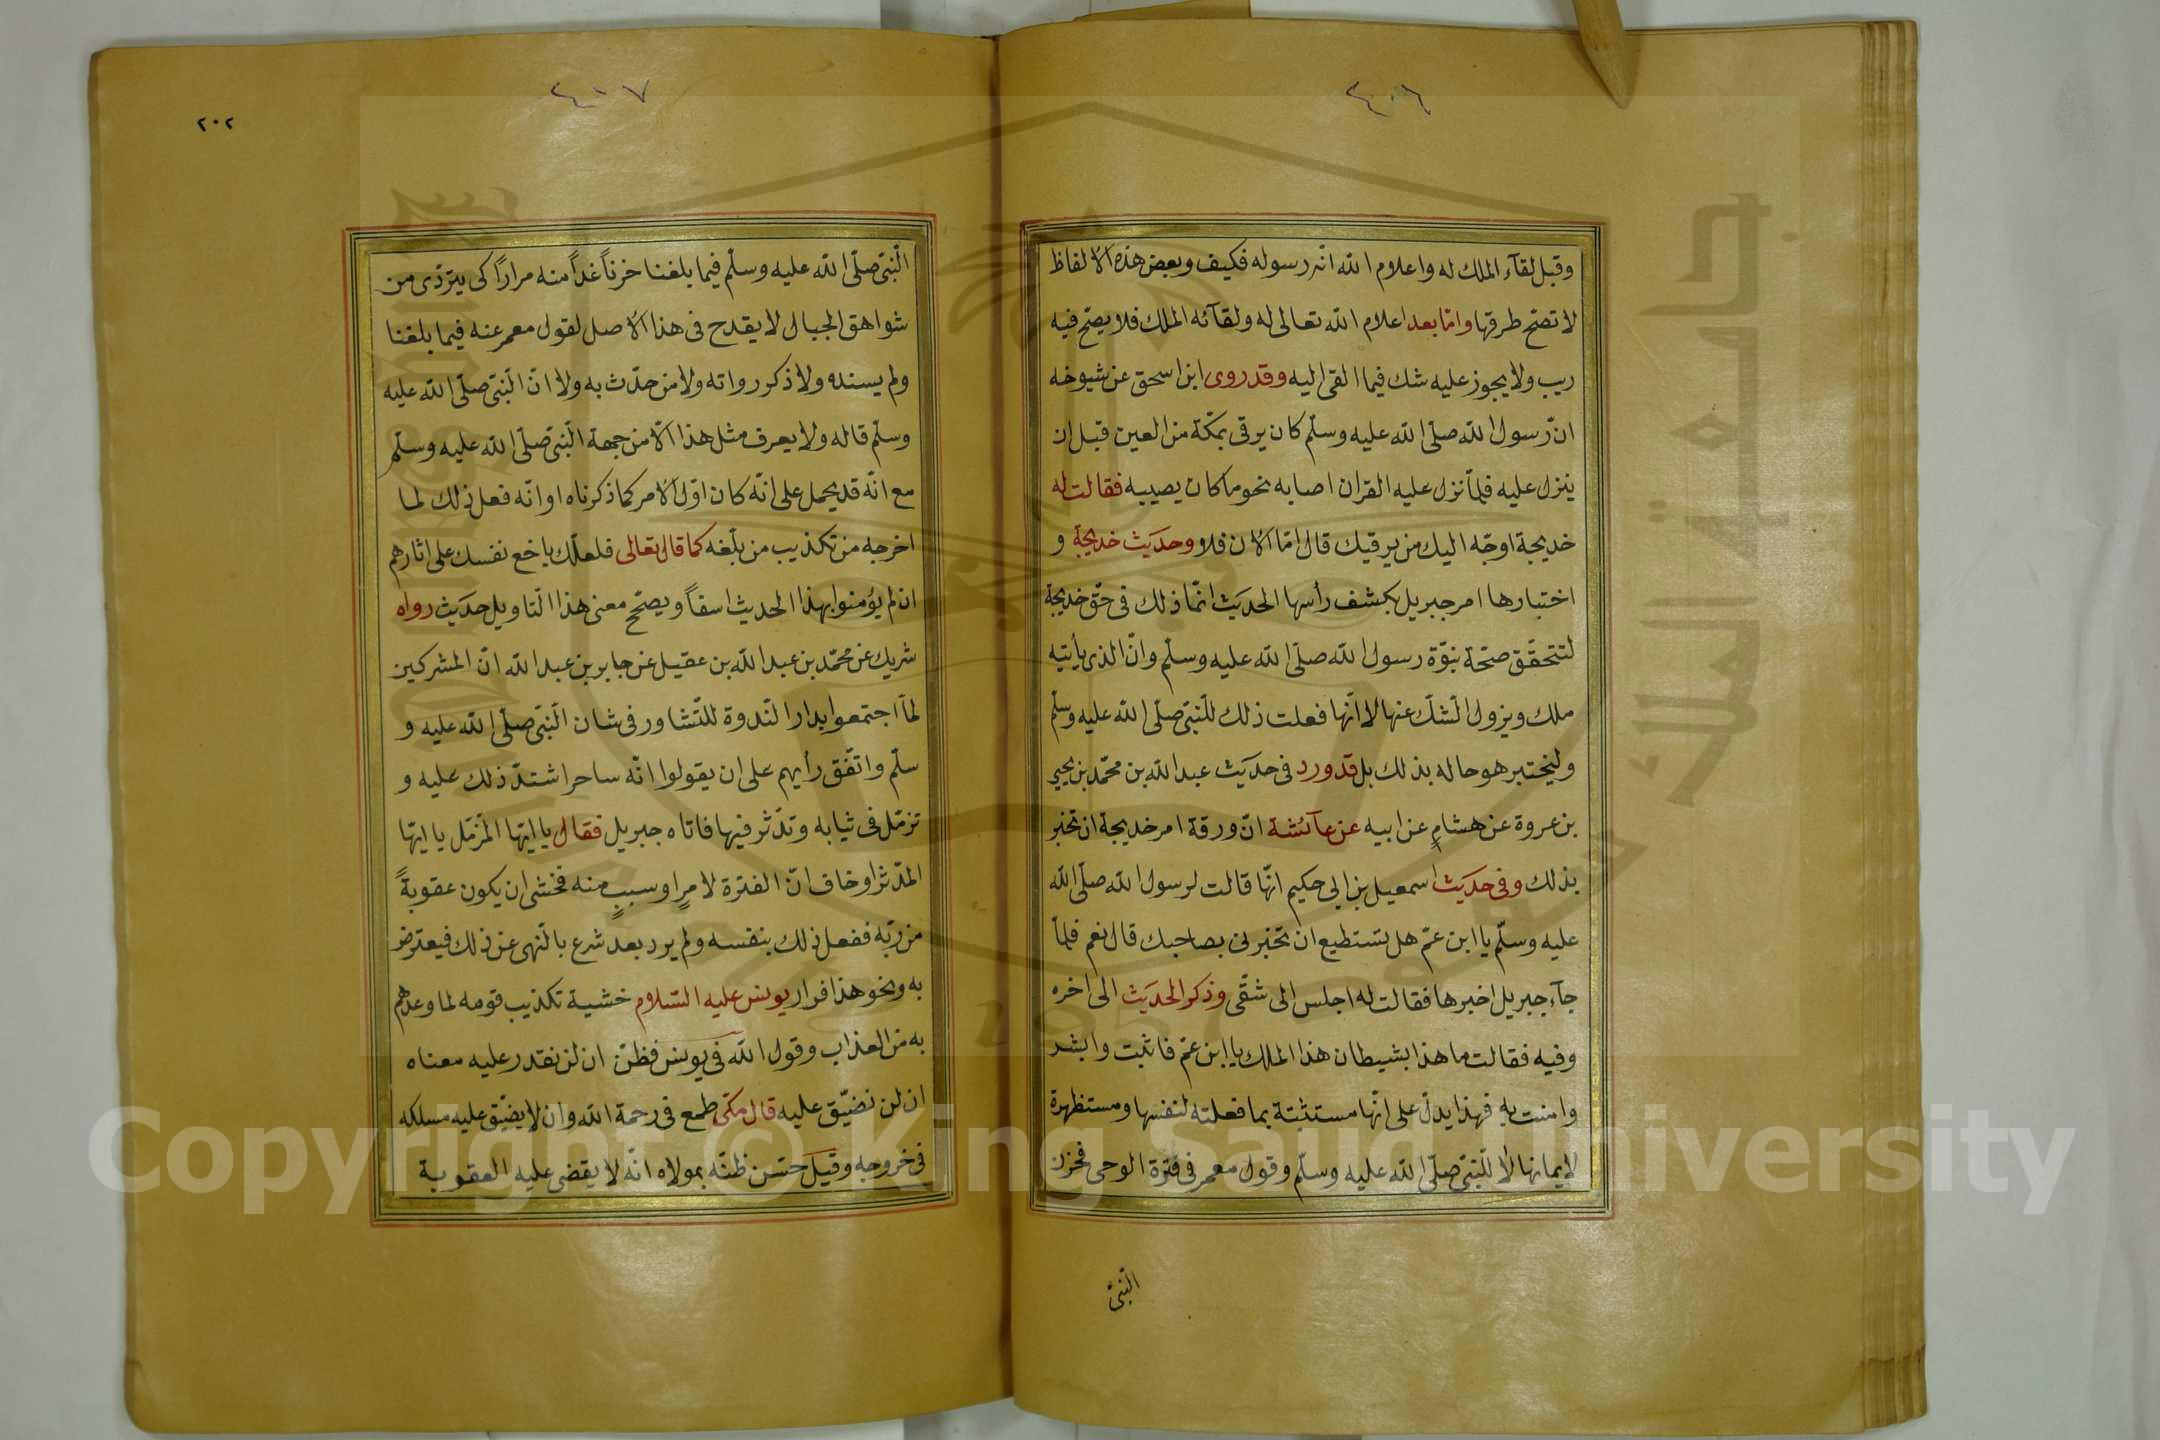 ٤٠٦
وقبل لقآء الملك له واعلام الله انه رسوله فكيف وبعض هذه الالفاظ
لا تصحّ طرقها وامّا بعد اعلام الله تعالى له ولقآئه الملك فلا يصحّ فيه
ريب ولا يجوز عليه شك فيما القى اليه وقد روى ابن اسحق عن شيوخه
انّ رسول الله صلّى الله عليه وسلّم كان يرقى بمكّة من العين قبل ان
ينزل عليه فلمّا نزل عليه القران اصابه نحو ما كان يصيبه فقالت له
خديجة اوجّه اليك من يرقيك قال امّا الان فلا وحديث خديجة و
اختبارها امر جبريل بكشف رأسها الحديث انّما ذلك فى حقّ خديجة
لتتحقّق صحّة نبوّة رسول الله صلّى الله عليه وسلّم وانّ الذى يأتيه
ملك ويزول الشّك عنها لا انّها فعلت ذلك للنّبىّ صلّى الله عليه وسلّم
وليختبر هو حاله بذلك بل قد ورد فى حديث عبد الله بن محمّد بن يحيى
بن عروة عن هشامٍ عن ابيه عن عآئشة انّ ورقة امر خديجة ان تخبر
بذلك وفى حديث اسمعيل بن ابى حكيم انّها قالت لرسول الله صلّى الله
عليه وسلّم يا ابن عمّ هل تستطيع ان تخبرنى بصاحبك قال نعم فلمّا
جآء جبريل اخبرها فقالت له اجلس الى شقّى وذكر الحديث الى اخره
وفيه فقالت ما هذا بشيطان هذا الملك يا ابن عمّ فاثبت وابشر
وامنت به فهذا يدلّ على انّها مستثبتة بما فعلته لنفسها ومستظهرة
لايمانها لا للنّبىّ صلّى الله عليه وسلّم وقول معمر فى فترة الوحى فحزن
النّبىّ
٤٠٧
٢٠٢
النّبىّ صلّى الله عليه وسلّم فيما بلغنا حزناً غداً منه مراراً كى يتردّى من
شواهق الجبال لا يقدح فى هذا الاصل لقول معمر عنه فيما بلغنا
ولم يسنده ولا ذكر رواته ولا من حدّث به ولا انّ النّبىّ صلّى الله عليه
وسلّم قاله ولا يعرف مثل هذا الّا من جهة النّبىّ صلّى الله عليه وسلّم
مع انّه قد يحمل على انّه كان اوّل الامر كما ذكرناه او انّه فعل ذلك لما
اخرجه من تكذيب من بلّغه كما قال تعالى فلعلّك باخع نفسك على اثارهم
ان لم يؤمنوا بهذا الحديث اسفاً ويصحّح معنى هذا التّاويل حديث رواه
شريك عن محمّد بن عبد الله بن عقيل عن جابر بن عبد الله انّ المشركين
لمّا اجتمعوا بدار النّدوة للتّشاور فى شان النّبىّ صلّى الله عليه و
سلّم واتّفق رأيهم على ان يقولوا انّه ساحر اشتدّ ذلك عليه و
تزمّل فى ثيابه وتدّثر فيها فاتاه جبريل فقال يا ايّها المزّمّل يا ايّها
المدّثّر او خاف انّ الفترة لامرٍ او سببٍ منه فخشى ان يكون عقوبةً
من ربّه ففعل ذلك بنفسه ولم يرد بعد شرع بالنّهى عن ذلك فيعترض
به ونحو هذا فرار يونس عليه السّلام خشية تكذيب قومه لما وعدهم
به من العذاب وقول الله فى يونس فظنّ ان لن نقدر عليه معناه
ان لن نضيّق عليه قال مكّى طمع فى رحمة الله وان لا يضيّق عليه مسلكه
فى خروجه وقيل حسّن ظنّه بمولاه انّه لا يقضى عليه العقوبة
جامعة الملك سعود
1957
Copyright © King Saud University